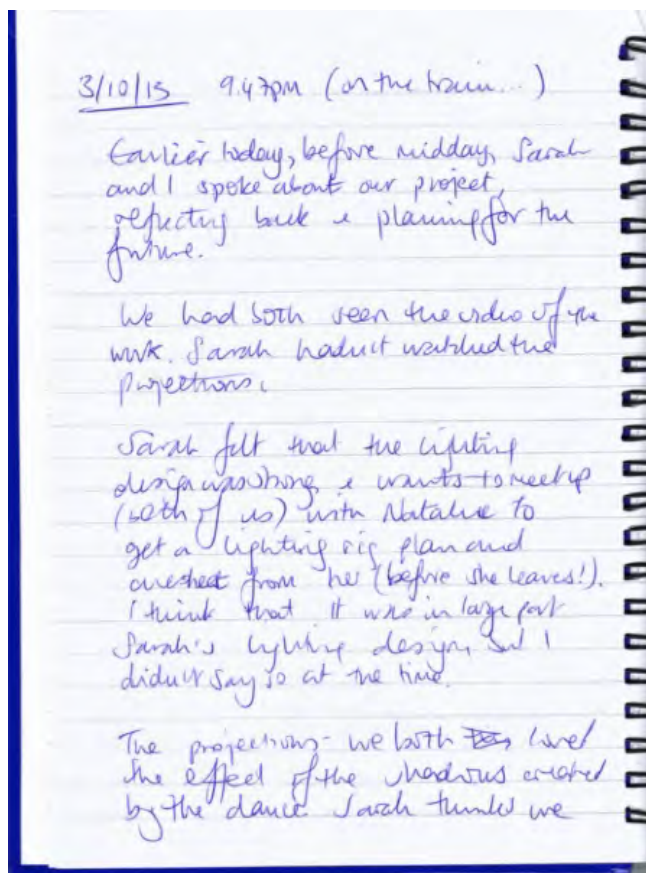 3/10/15 9.47pm (on the train...)
Earlier today, before midday, Sarah
and I spoke about our project,
reflecting back & planning for the
future.
We had both seen the video of the
work. Sarah hadn't watched the
projections.
Sarah felt that the lighting
design was strong & wants to meet up
(both of us) with Natalie to
get a lighting rig plan and
cue sheet from her (before she leaves!).
I think that it was in large part
Sarah's lighting design, but I
didn't say so at the time.
The projections - we both loved
the effect of the shadows created
by the dance. Sarah thinks we